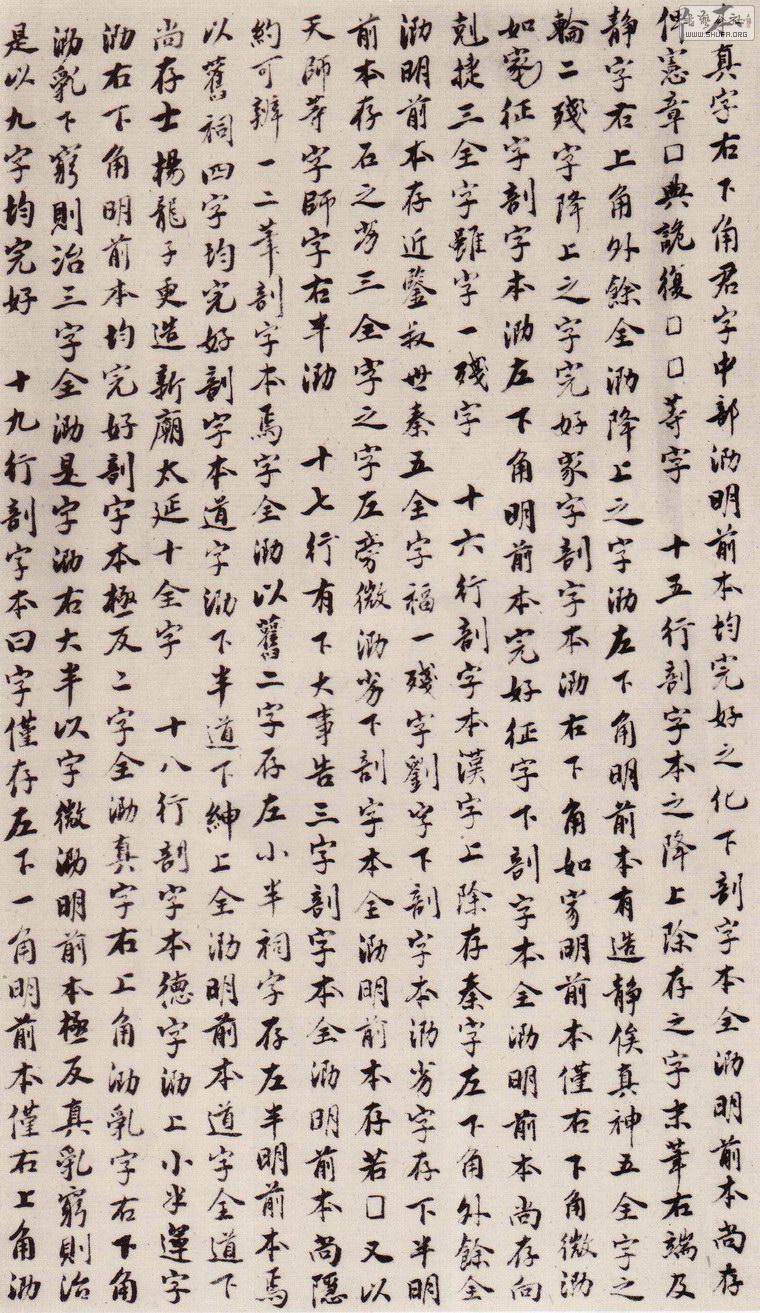 本真字右下角君字中部泐明前本均完好之化下剖字本全泐明前本尚存
伴憲章□典詭復□□等字　十五行剖字本之降上除存之字末筆右端及
静字右上角外餘全泐降上之字泐左下角明前本有造静俟真神五全字之
輪二殘字降上之字完好家字剖字本泐右下角如家明前本僅右下角微泐
如家征字剖字本泐左下角明前本完好征字下剖字本全泐明前本尚存向
剋捷三全字雖字一殘字　十六行剖字本漢字上除存秦字左下角外餘全
泐明前本存近鑒叔世秦五全字福一殘字劉字下剖字本泐劣字存下半明
前本存石之劣三全字之字左旁微泐劣下剖字本全泐明前本存若□又以
天師等字師字右半泐　十七行有下大事告三字剖字本全泐明前本尚隱
約可辨一二筆剖字本焉字全泐以舊二字存左小半祠字存左半明前本焉
以舊祠四字均完好剖字本道字泐下半道下紳上全泐明前本道字全道下
尚存士楊龍子更造新廟太延十全字　十八行剖字本德字泐上小半運字
泐右下角明前本均完好剖字本極反二字全泐真字右上角泐亂字右下角
泐亂下窮則治三字全泐是字泐右大半以字微泐明前本極反真亂窮則治
是以九字均完好　十九行剖字本曰字僅存左下一角明前本僅右上角泐
書法字典
WWW.SHUFA.ORG